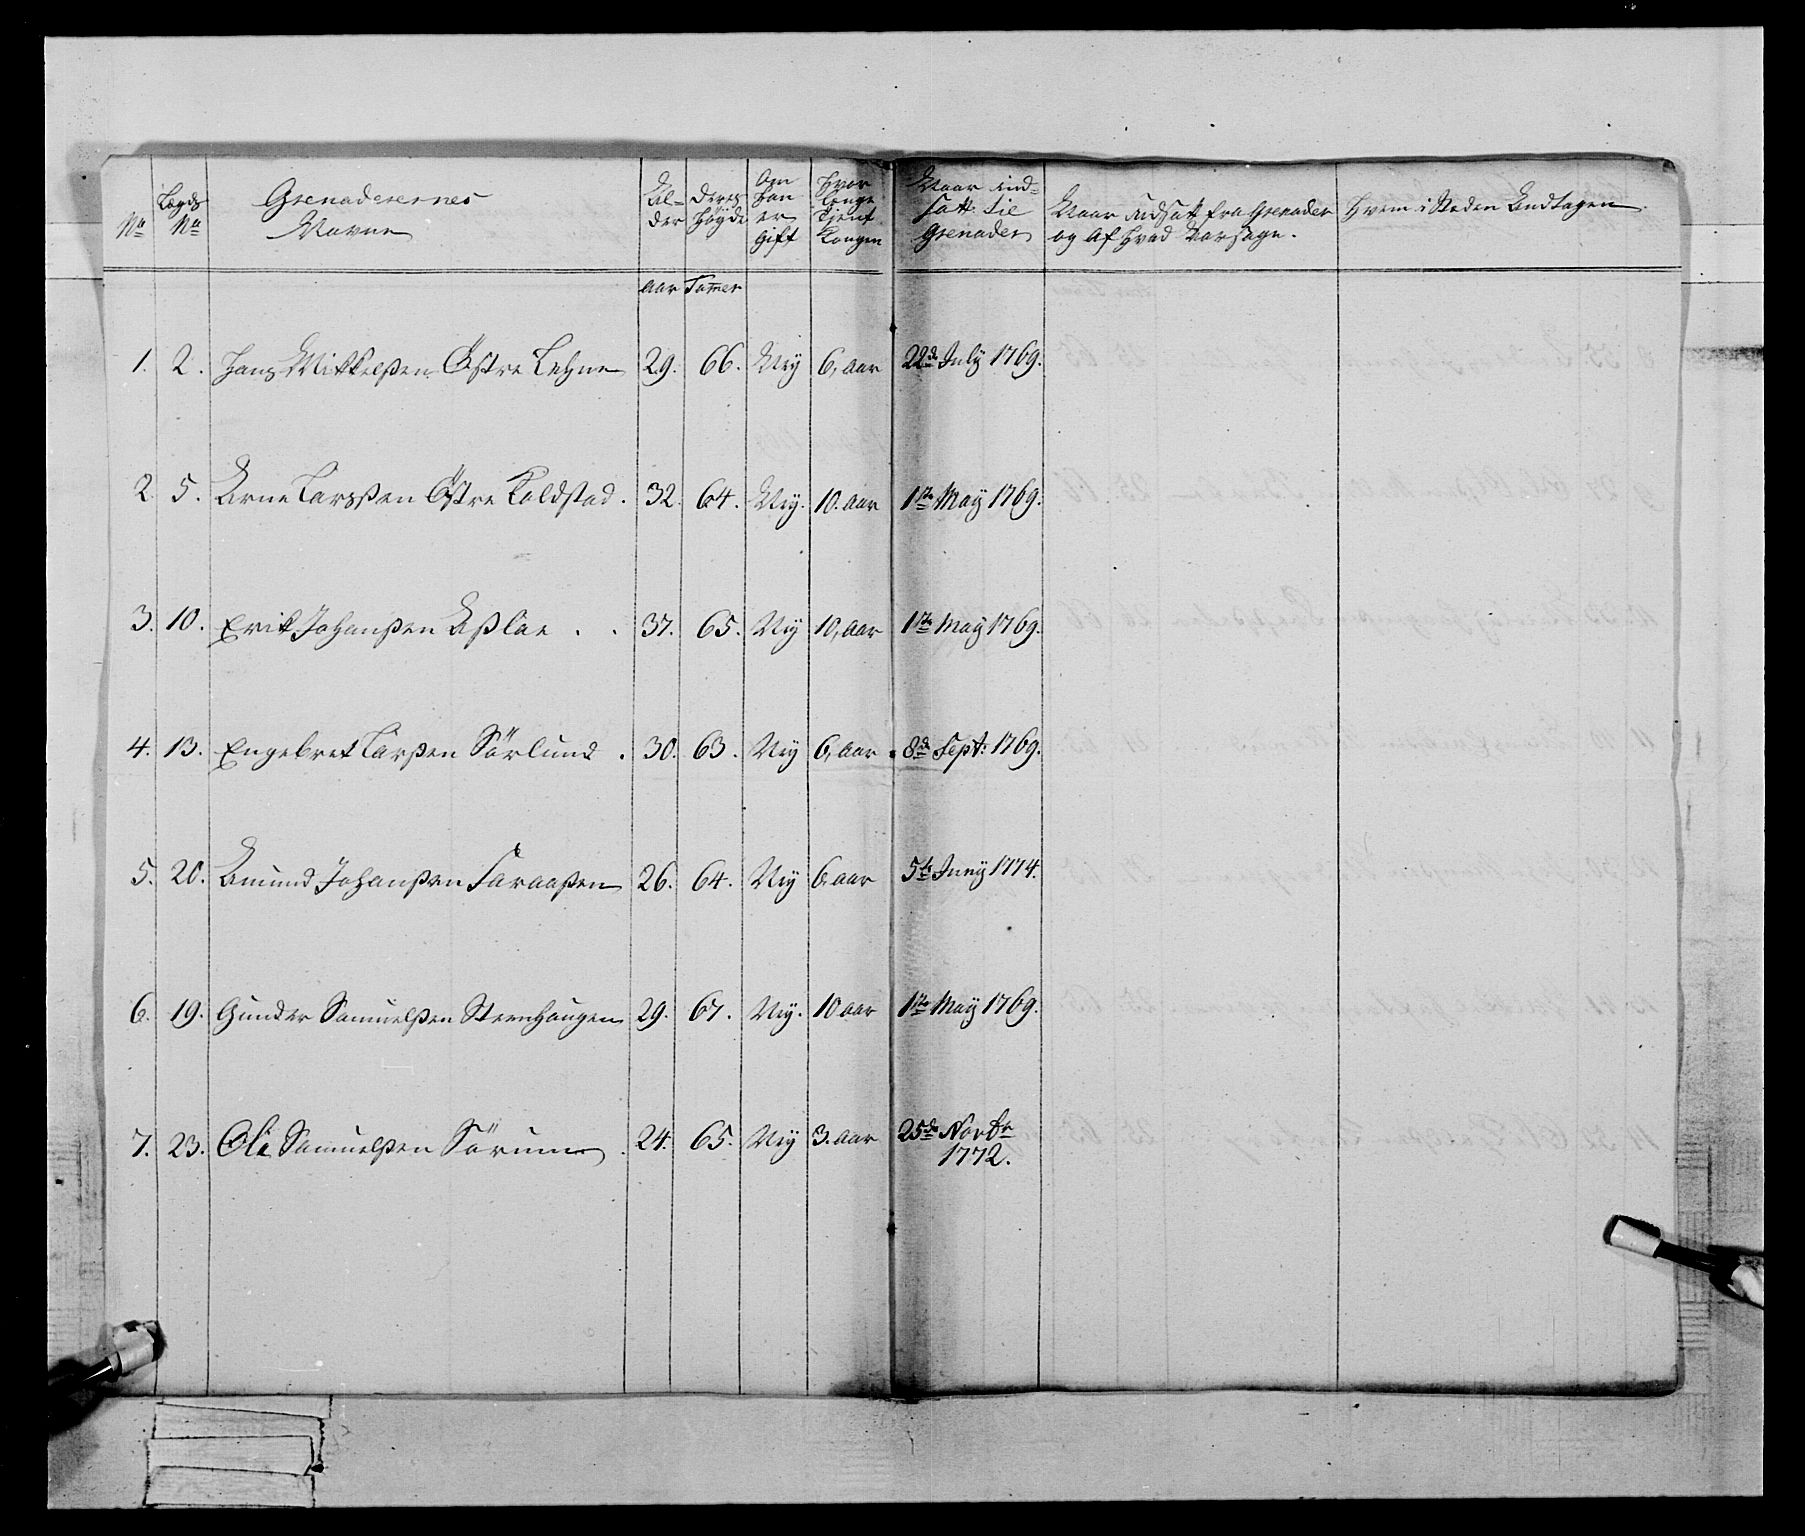 No
Lægds No
Grenaderernes Navne
Al-der
Deres Høyde
Om han er Gift
Hvor længe Tient Kongen
Naar ind-satt til Grenader
Naar Udsatt fra Grenader og af hvad Aarsage.
Hvem i Steden Andtagen
Aar Tomer
1. 2. Hans Mikkelsßen Östre Lehne 29. 66. Ney 6, aar 22de July 1769.
2. 5. Arne Larsßen Östre Koldstad. 32. 64. Ney. 10. aar 1te May 1769.
3. 10. Erik Johanßen Aßlae . . 37. 65. Ney 10, aar 1te May 1769.
4. 13. Engebret Larßen Sörlund . 30. 63. Ney 6, aar 8de Sept: 1769.
5. 20. Amund Johanßen Taraaßen 26. 64. Ney 6. aar 5te Juny 1774.
6. 19. Gunder Samuelßen Steenhaugen 29. 67. Ney. 10 aar 1te May 1769.
7. 23. Ole Samuelßen Sörum . 24. 65. Ney 3. aar 25de Novbr 1772.